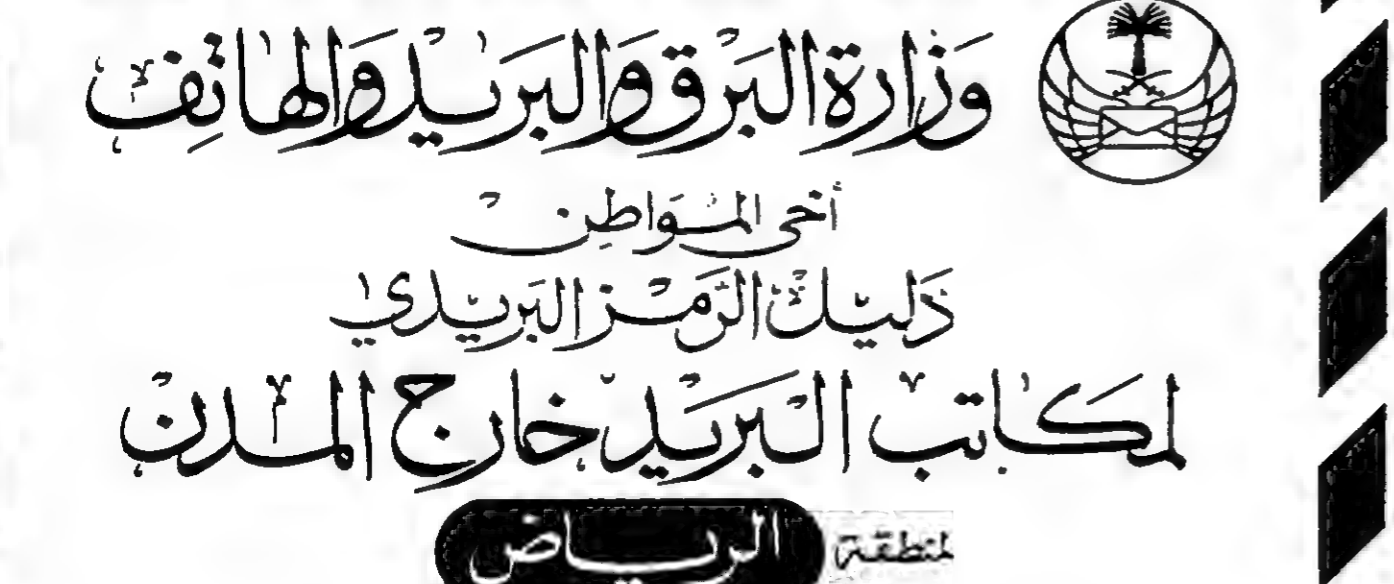 وزارة البرق والبريد والهاتف
أخي المواطن
دليل الرمز البريدي
لمكاتب البريد خارج المدن
لمنطقة الرياض